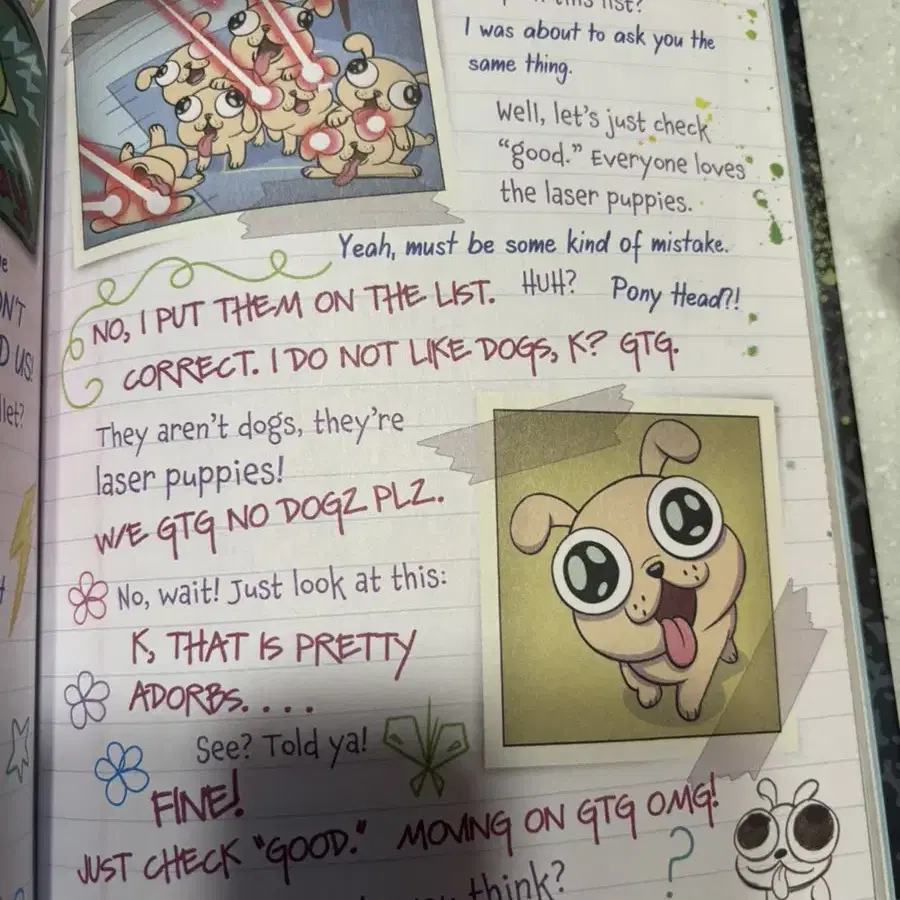 this list?
I was about to ask you the
same thing.
Well, let's just check
"good." Everyone loves
the laser puppies.
Yeah, must be some kind of mistake.
NO, I PUT THEM ON THE LIST. HUH? Pony Head?!
CORRECT. I DO NOT LIKE DOGS, K? GTG.
They aren't dogs, they're
laser puppies!
W/E GTG NO DOGZ PLZ.
No, wait! Just look at this:
K, THAT IS PRETTY
ADORBS. . . .
See? Told ya!
FINE!
JUST CHECK "GOOD." MOVING ON GTG OMG!
think?
?